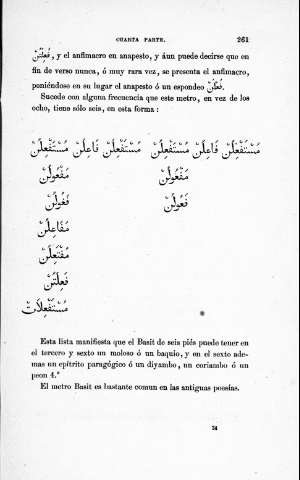 CUARTA PARTE. 261
فَعِلَتُنْ, y el anfimacro en anapesto, y áun puede decirse que en
fin de verso nunca, ó muy rara vez, se presenta el anfimacro,
poniéndose en su lugar el anapesto ó un espondeo فَعْلُنْ.
Sucede con alguna frecuencia que este metro, en vez de los
ocho, tiene sólo seis, en esta forma :
مُسْتَفْعِلُنْ فَاعِلُنْ مُسْتَفْعِلُنْ مُسْتَفْعِلُنْ فَاعِلُنْ مُسْتَفْعِلُنْ
مَفْعُولُنْ مَفْعُولُنْ
فَعُولُنْ فَعُولُنْ
مَفَاعِلُنْ
مُفْتَعِلُنْ
فَعِلَتُنْ
مُسْتَفْعِلَاتْ
Esta lista manifiesta que el Basit de seis piés puede tener en
el tercero y sexto un moloso ó un baquio, y en el sexto ade-
mas un epítrito paragógico ó un diyambo, un coriambo ó un
peon 4.º
El metro Basit es bastante comun en las antiguas poesías.